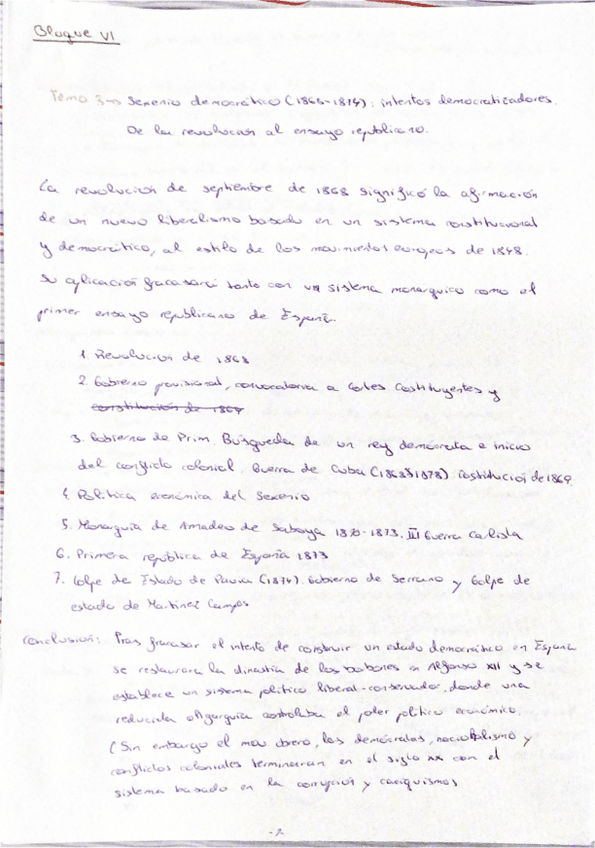 Bloque VI
Tema 3→ Sexenio democrático (1868-1874): intentos democratizadores.
De la revolución al ensayo republicano.
La revolución de septiembre de 1868 significó la afirmación
de un nuevo liberalismo basado en un sistema constitucional
y democrático, al estilo de los movimientos europeos de 1848.
Su aplicación fracasará tanto con un sistema monarquico como el
primer ensayo republicano de España.
1. Revolución de 1868
2. Gobierno provisional, convocatoria a Cortes Costituyentes y
constitución de 1869
3. Gobierno de Prim. Búsqueda de un rey demócrata e inicio
del conflicto colonial. Guerra de Cuba (1868-1878) Costitución de 1869.
4. Politica económica del Sexenio
5. Monarquía de Amadeo de Saboya 1870-1873. III Guerra Carlista
6. Primera republica de España 1873
7. Golpe de Estado de Pavia (1874). Gobierno de Serrano y Golpe de
estado de Martinez Campos
Conclusión: Tras fracasar el intento de construir un estado democrático en España
se restaurara la dinastía de los borbones en Alfonso XII y se
establece un sistema político liberal-conservador, donde una
reducida oligarquía controlaba el poder político económico.
(Sin embargo el mov obrero, los demócratas, nacionalismo y
conflictos coloniales terminaran en el siglo XX con el
sistema basado en la corrupción y caciquismos